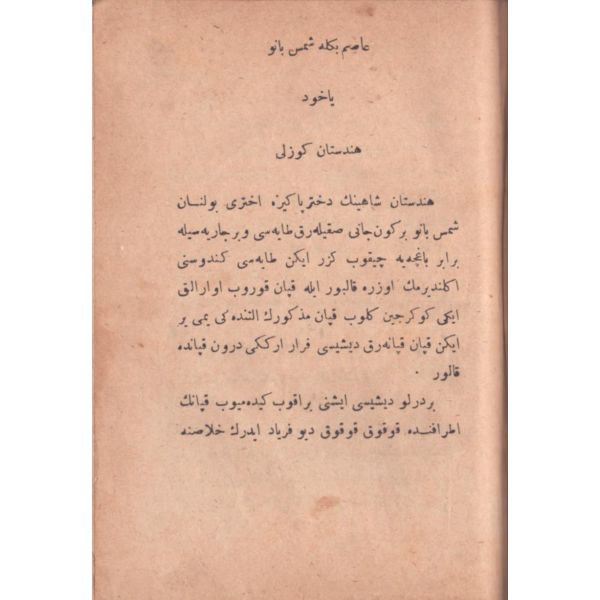 عاصم بكله شمس بانو
ياخود
هندستان كوزلى
هندستان شاهينك دختر پاكيزه اخترى بولنسان
شمس بانو بر كون جانى صقيله رق طايه سى و بر جاريه سيله
برابر باغچه يه چيقوب كزر ايكن طايه مى كندوسنى
اكلنديرمك اوزره قالبور ايله قپان قوروب اوارالق
ايكى كوكرجين كلوب قپان مذكورك التنده كى يمى ير
ايكن قپان قپانه رق ديشيسى فرار ارككى درون قپانده
قالور ·
بردرلو ديشيسى ايشنى براقوب كيده ميوب قپانك
اطرافنده قوقوق قوقوق ديو فرياد ايدرك خلاصنه